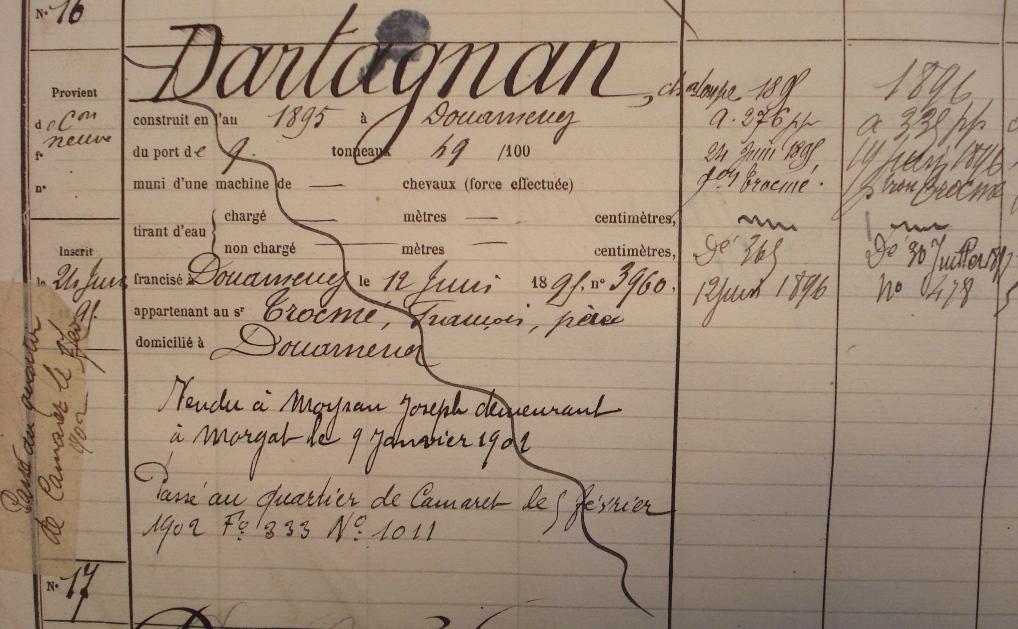 N° 16
Dartagnan, chaloupe
Provient
de Con
neuve
f°
n°
construit en l'an 1895 à Douarnenez
du port de 9 tonneaux 49 /100
muni d'une machine de — chevaux (force effectuée)
tirant d'eau
chargé — mètres — centimètres,
non chargé — mètres — centimètres,
Inscrit
le 24 Juin
95
francisé à Douarnenez le 12 Juin 1895. n° 3960.
appartenant au sr Trocmé, François, père
domicilié à Douarnenez
Vendu à Moysan Joseph demeurant
à Morgat le 9 Janvier 1902
Passé au quartier de Camaret le 5 février
1902 F° 333 N° 1011
Passé au quartier
de Camaret le 5
1902
N° 17
1895
a. 276 pp
24 Juin 1895
Trocmé.
Dé 365
12 juin 1896
1896
a 335 pp
19 juin 1896
Trocmé
Dé 30 Juillet
N° 478